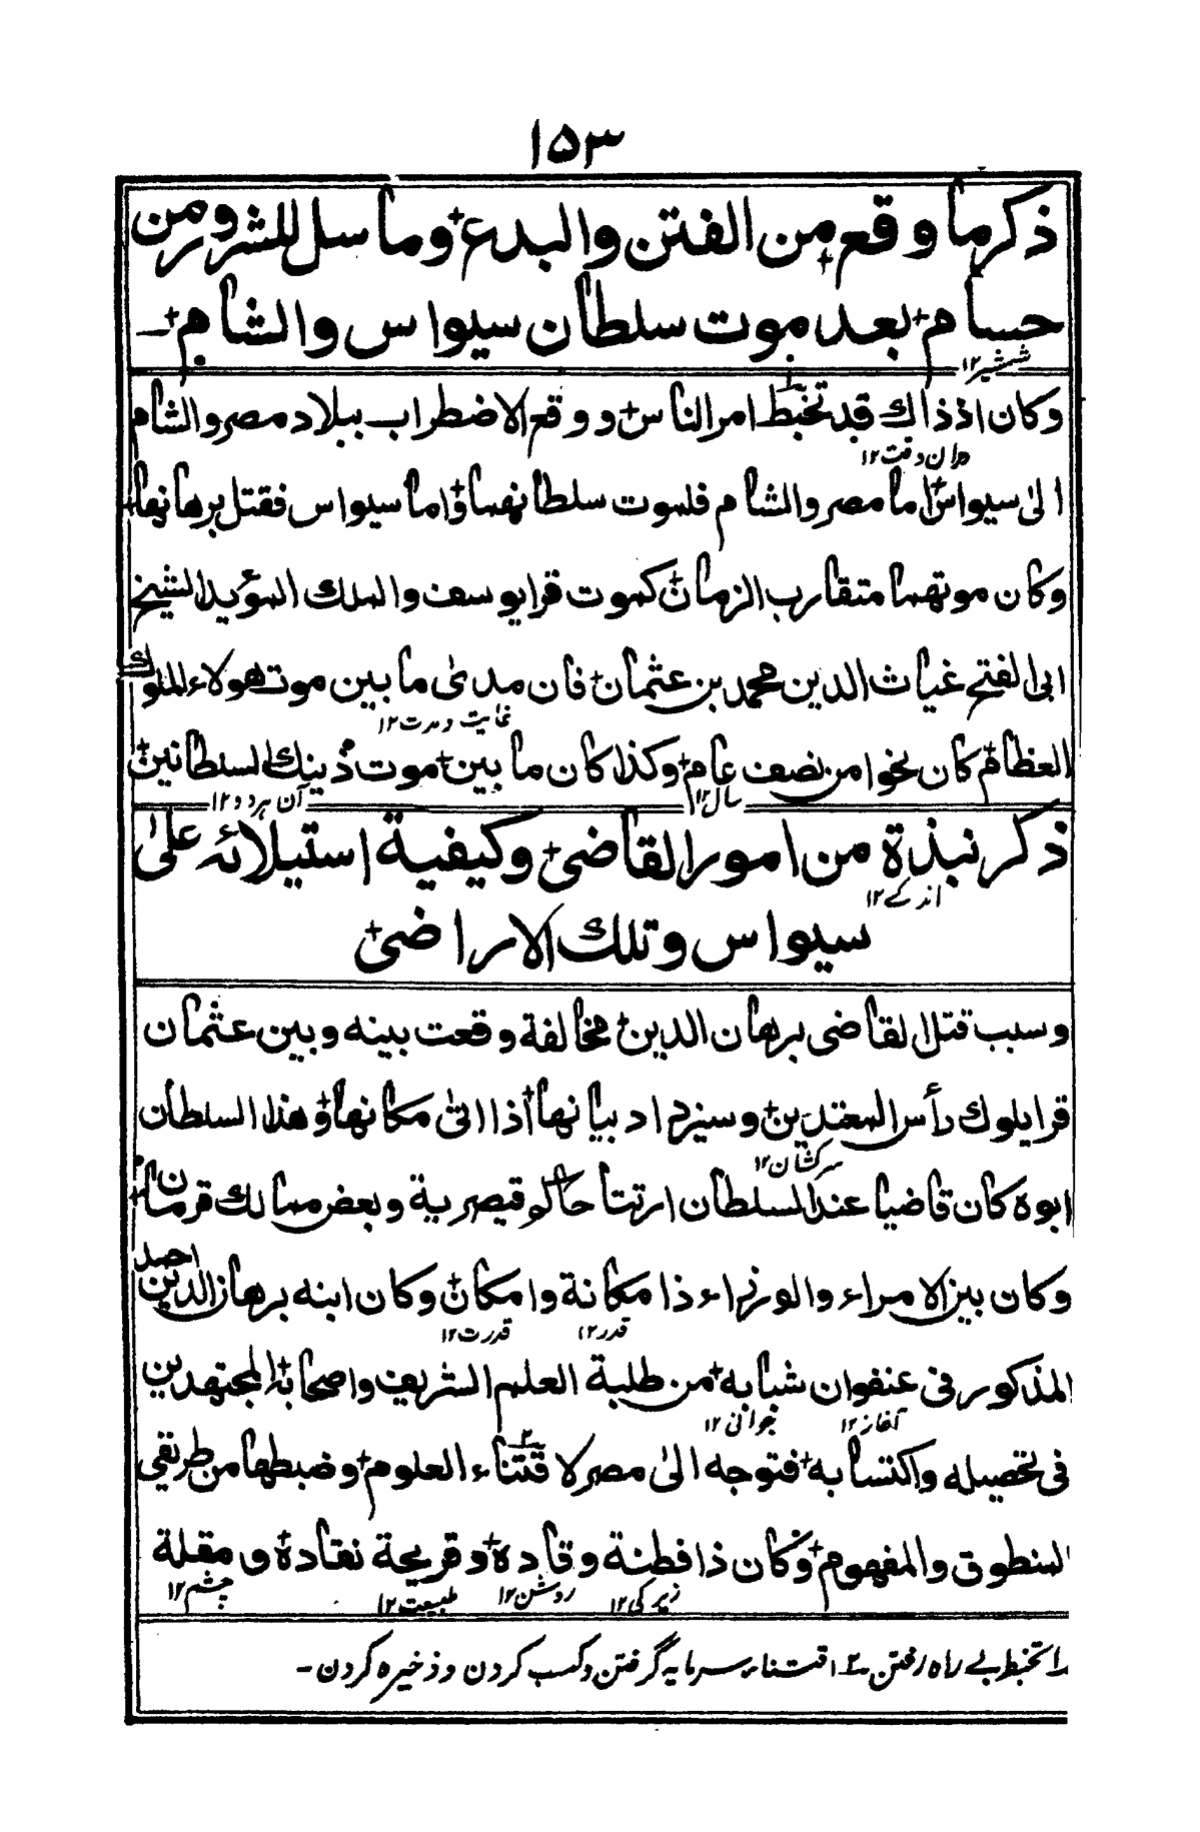 ١٥٣
ذكر ما وقع من الفتن والبدع + وما سل للشرور من
حسام + بعد موت سلطان سيواس والشام + ـ
شمشير ١٢
وكان اذ ذاك قد تخبط امر الناس + ووقع الاضطراب ببلاد مصر والشام
دران وقت ١٢
الىٰ سيواس + اما مصر والشام فلموت سلطانهما + واما سيواس فقتل برهانها +
وكان موتهما متقارب الزمان + كموت قرا يوسف والملك المؤيد الشيخ
ابى الفتح غياث الدين محمد بن عثمان + فان مدىٰ ما بين موت هولاء الملوك
غايت و مدت ١٢
العظام + كان نحوا من نصف عام + وكذا كان ما بين + موت ذينك السلطانين +
سال ١٢ آن هر دو ١٢
ذكر نبذة من امور القاضى + وكيفية استيلائه علىٰ
اندكے ١٢
سيواس وتلك الاراضى +
وسبب قتل القاضى برهان الدين + مخالفة وقعت بينه وبين عثمان
قرايلوك رأس المعتدين + وسيزداد بيانها + اذا اتىٰ مكانها + وهذا السلطان
سركشان ١٢
ابوه كان قاضيا عند السلطان ارتنا حاكم قيصرية وبعض ممالك قرمان +
وكان بين الامراء والوزراء ذا مكانة وامكان + وكان ابنه برهان الدين احمد
قدر ١٢ قدرت ١٢
المذكور فى عنفوان شبابه + من طلبة العلم الشريف واصحابه + المجتهدين
آغاز ١٢ جوانى ١٢
فى تحصيله واكتسابه + فتوجه الىٰ مصر لاقتناء ٢ العلوم + وضبطها من طريقى
المنطوق والمفهوم + وكان ذا فطنة وقادة + وقريحة نقادة + و مقلة
زيركى ١٢ روشن ١٢ طبيعت ١٢ چشم ١٢
١ـ تخبط بے راه رفتن ٢ـ اقتناء سرمايه گرفتن وكسب كردن وذخيره كردن ـ